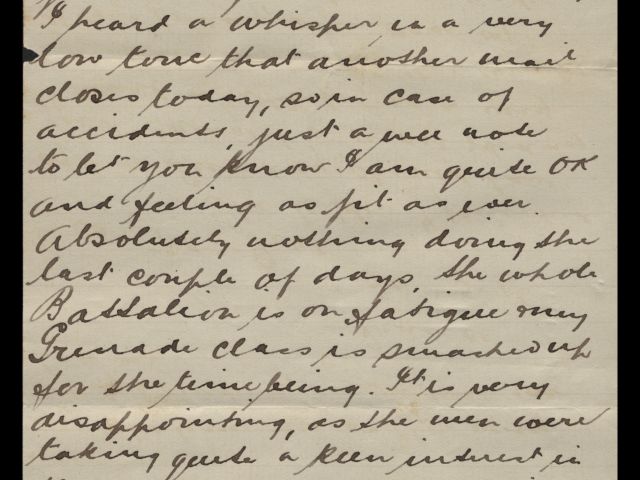 I heard a whisper in a very
low tone that another mail
closes today, so in case of
accidents, just a wee note
to let you know I am quite OK
and feeling as fit as ever.
Absolutely nothing doing the
last couple of days, the whole
Battalion is on fatigue & my
Grenade class is smashed up
for the time being. It is very
disappointing, as the men were
taking quite a keen interest in